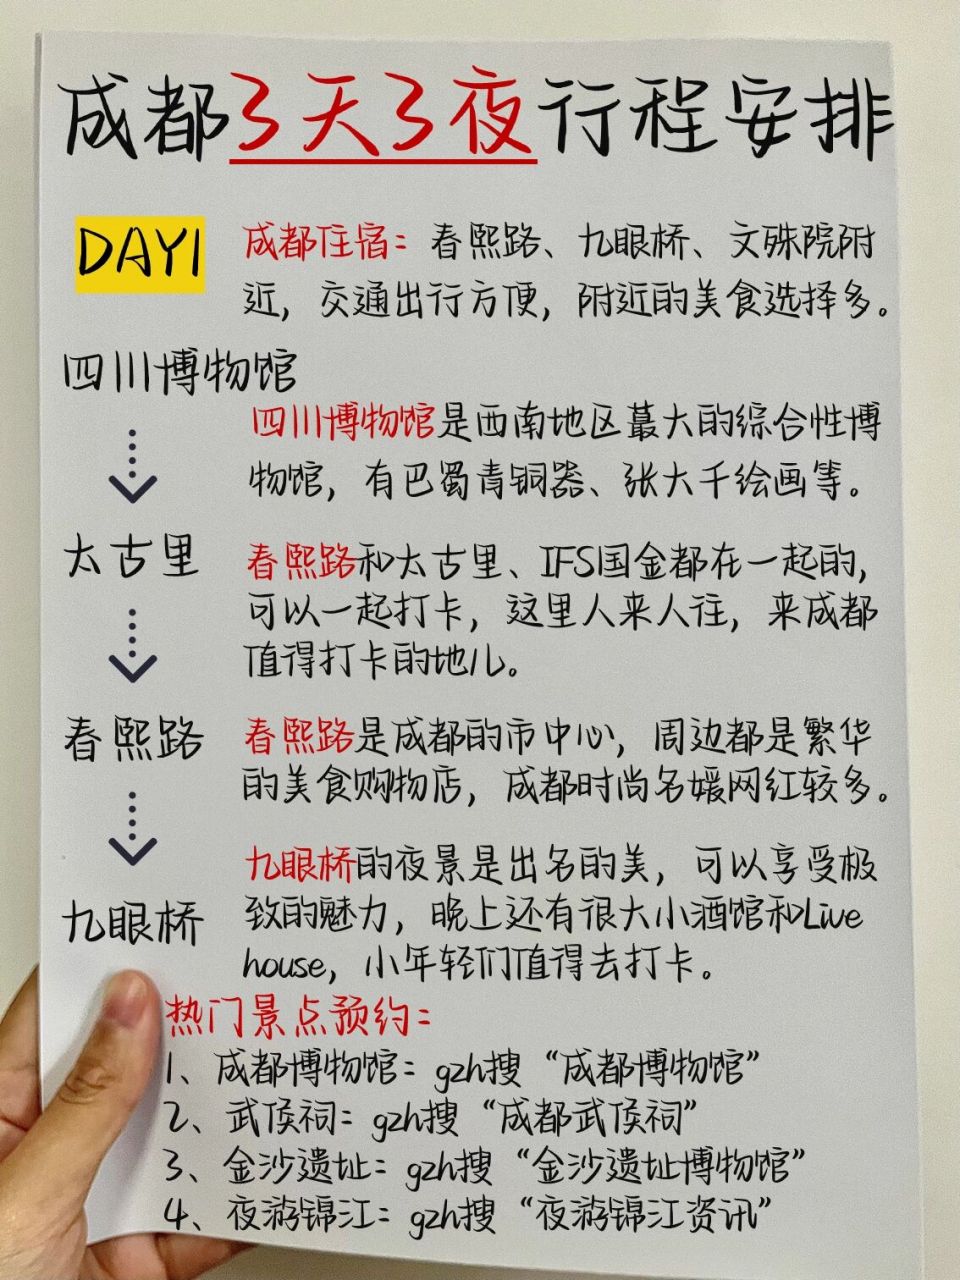 成都3天3夜行程安排
DAY1
成都住宿：春熙路、九眼桥、文殊院附
近，交通出行方便，附近的美食选择多。
四川博物馆
四川博物馆是西南地区蕞大的综合性博
物馆，有巴蜀青铜器、张大千绘画等。
太古里
春熙路和太古里、IFS国金都在一起的，
可以一起打卡，这里人来人往，来成都
值得打卡的地儿。
春熙路
春熙路是成都的市中心，周边都是繁华
的美食购物店，成都时尚名媛网红较多。
九眼桥
九眼桥的夜景是出名的美，可以享受极
致的魅力，晚上还有很大小酒馆和Live
house，小年轻们值得去打卡。
热门景点预约：
1、成都博物馆：gzh搜“成都博物馆”
2、武侯祠：gzh搜“成都武侯祠”
3、金沙遗址：gzh搜“金沙遗址博物馆”
4、夜游锦江：gzh搜“夜游锦江资讯”